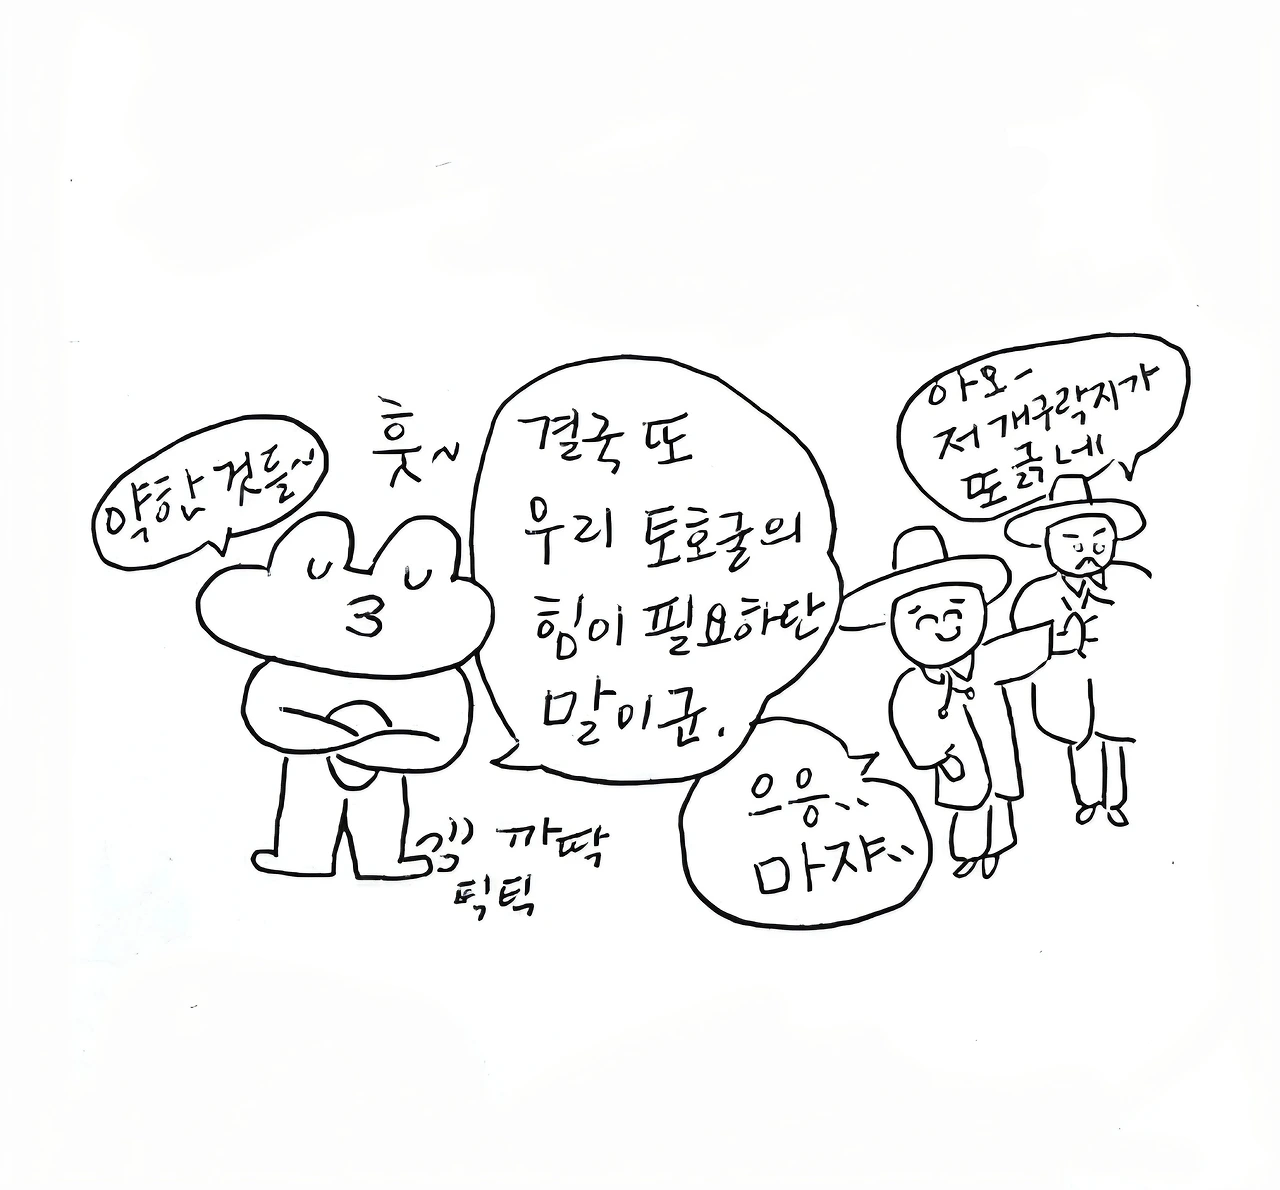 약한 것들~
훗~
결국 또
우리 토호굴의
힘이 필요하단
말이군.
까딱
틱틱
아오-
저 개구락지가
또 긁네
으응..
마쟈..